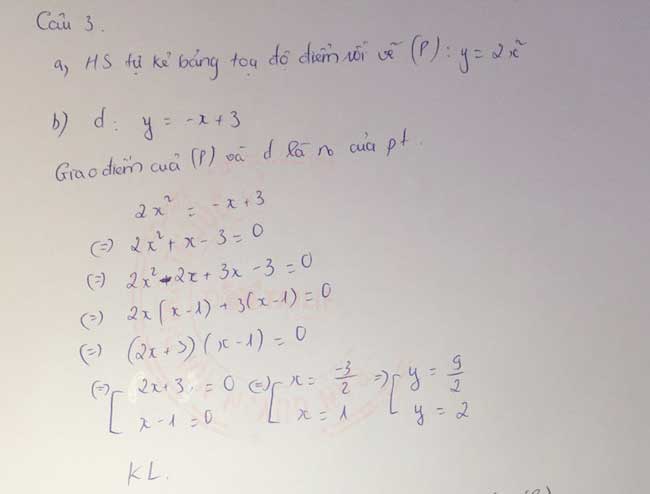 Câu 3.
a, HS tự kẻ bảng toạ độ điểm rồi vẽ (P): y = 2x²
b) d: y = -x + 3
Giao điểm cuả (P) và d là no của pt.
2x² = -x + 3
(=) 2x² + x - 3 = 0
(=) 2x² - 2x + 3x - 3 = 0
(=) 2x(x-1) + 3(x-1) = 0
(=) (2x+3)(x-1) = 0
(=) [ 2x+3 = 0 (=) [ x = -3/2 => [ y = 9/2
x - 1 = 0 x = 1 y = 2
KL.